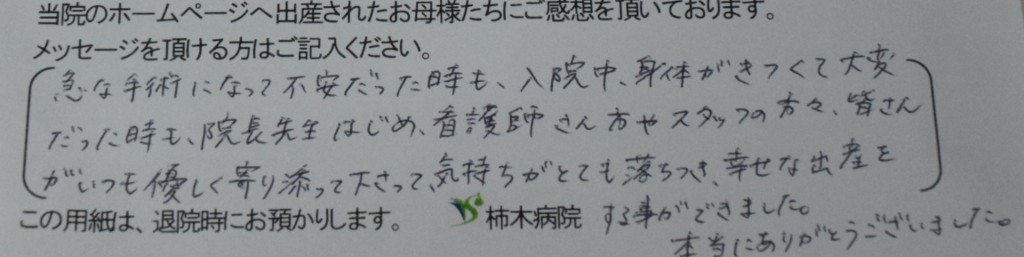 当院のホームページへ出産されたお母様たちにご感想を頂いております。
メッセージを頂ける方はご記入ください。
急な手術になって不安だった時も、入院中、身体がきつくて大変
だった時も、院長先生はじめ、看護師さん方やスタッフの方々、皆さん
がいつも優しく寄り添って下さって、気持ちがとても落ちつき、幸せな出産を
する事ができました。
本当にありがとうございました。
この用紙は、退院時にお預かりします。
柿木病院